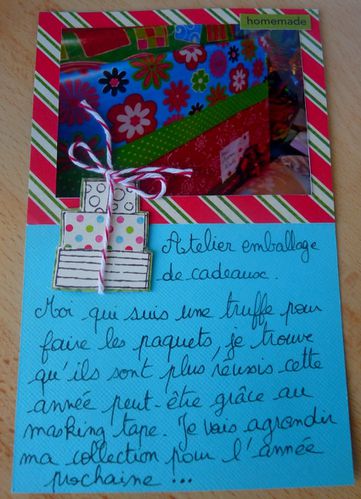 homemade
Atelier emballage
de cadeaux.
Moi qui suis une truffe pour
faire les paquets, je trouve
qu'ils sont plus réussis cette
année peut-être grâce au
masking tape. Je vais agrandir
ma collection pour l'année
prochaine ...